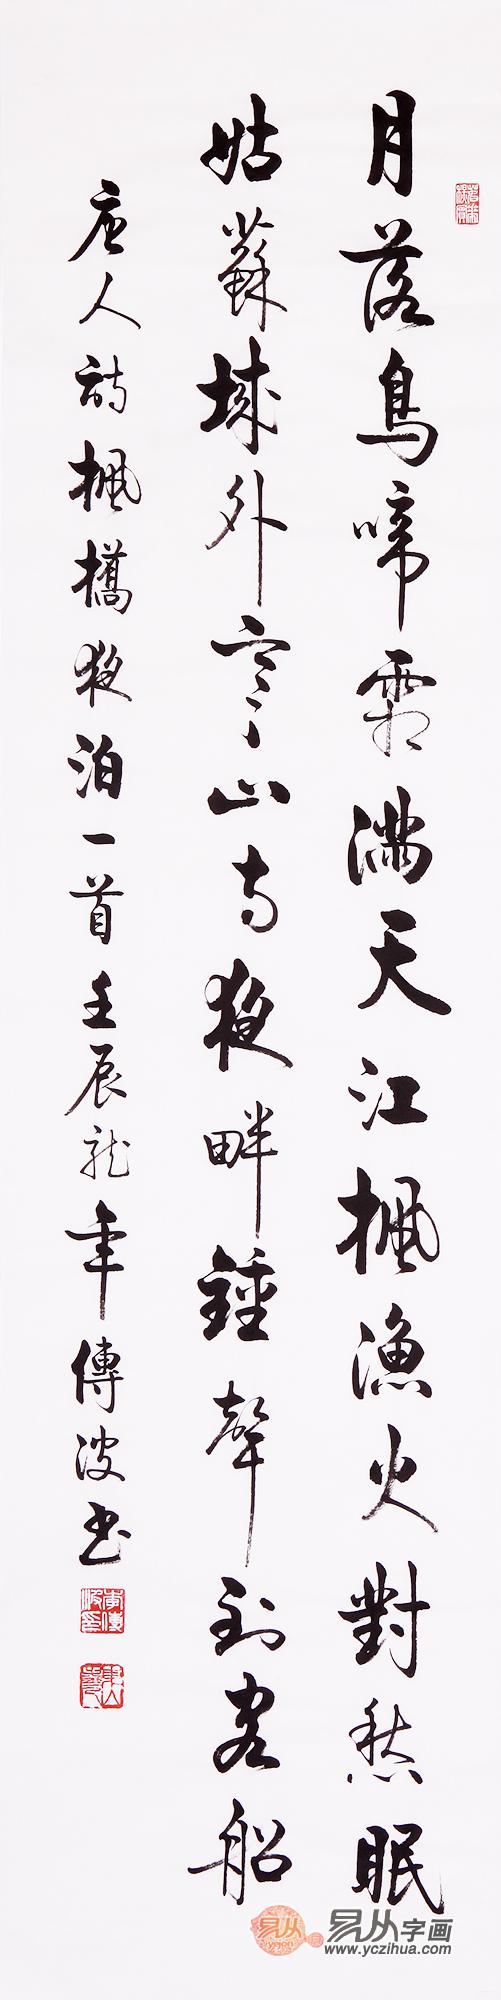 月落烏啼霜滿天江楓漁火對愁眠
姑蘇城外寒山寺夜畔鐘聲到客船
唐人詩楓橋夜泊一首壬辰龍年傳波书
易从
yczh
易从字画
www.yczihua.com